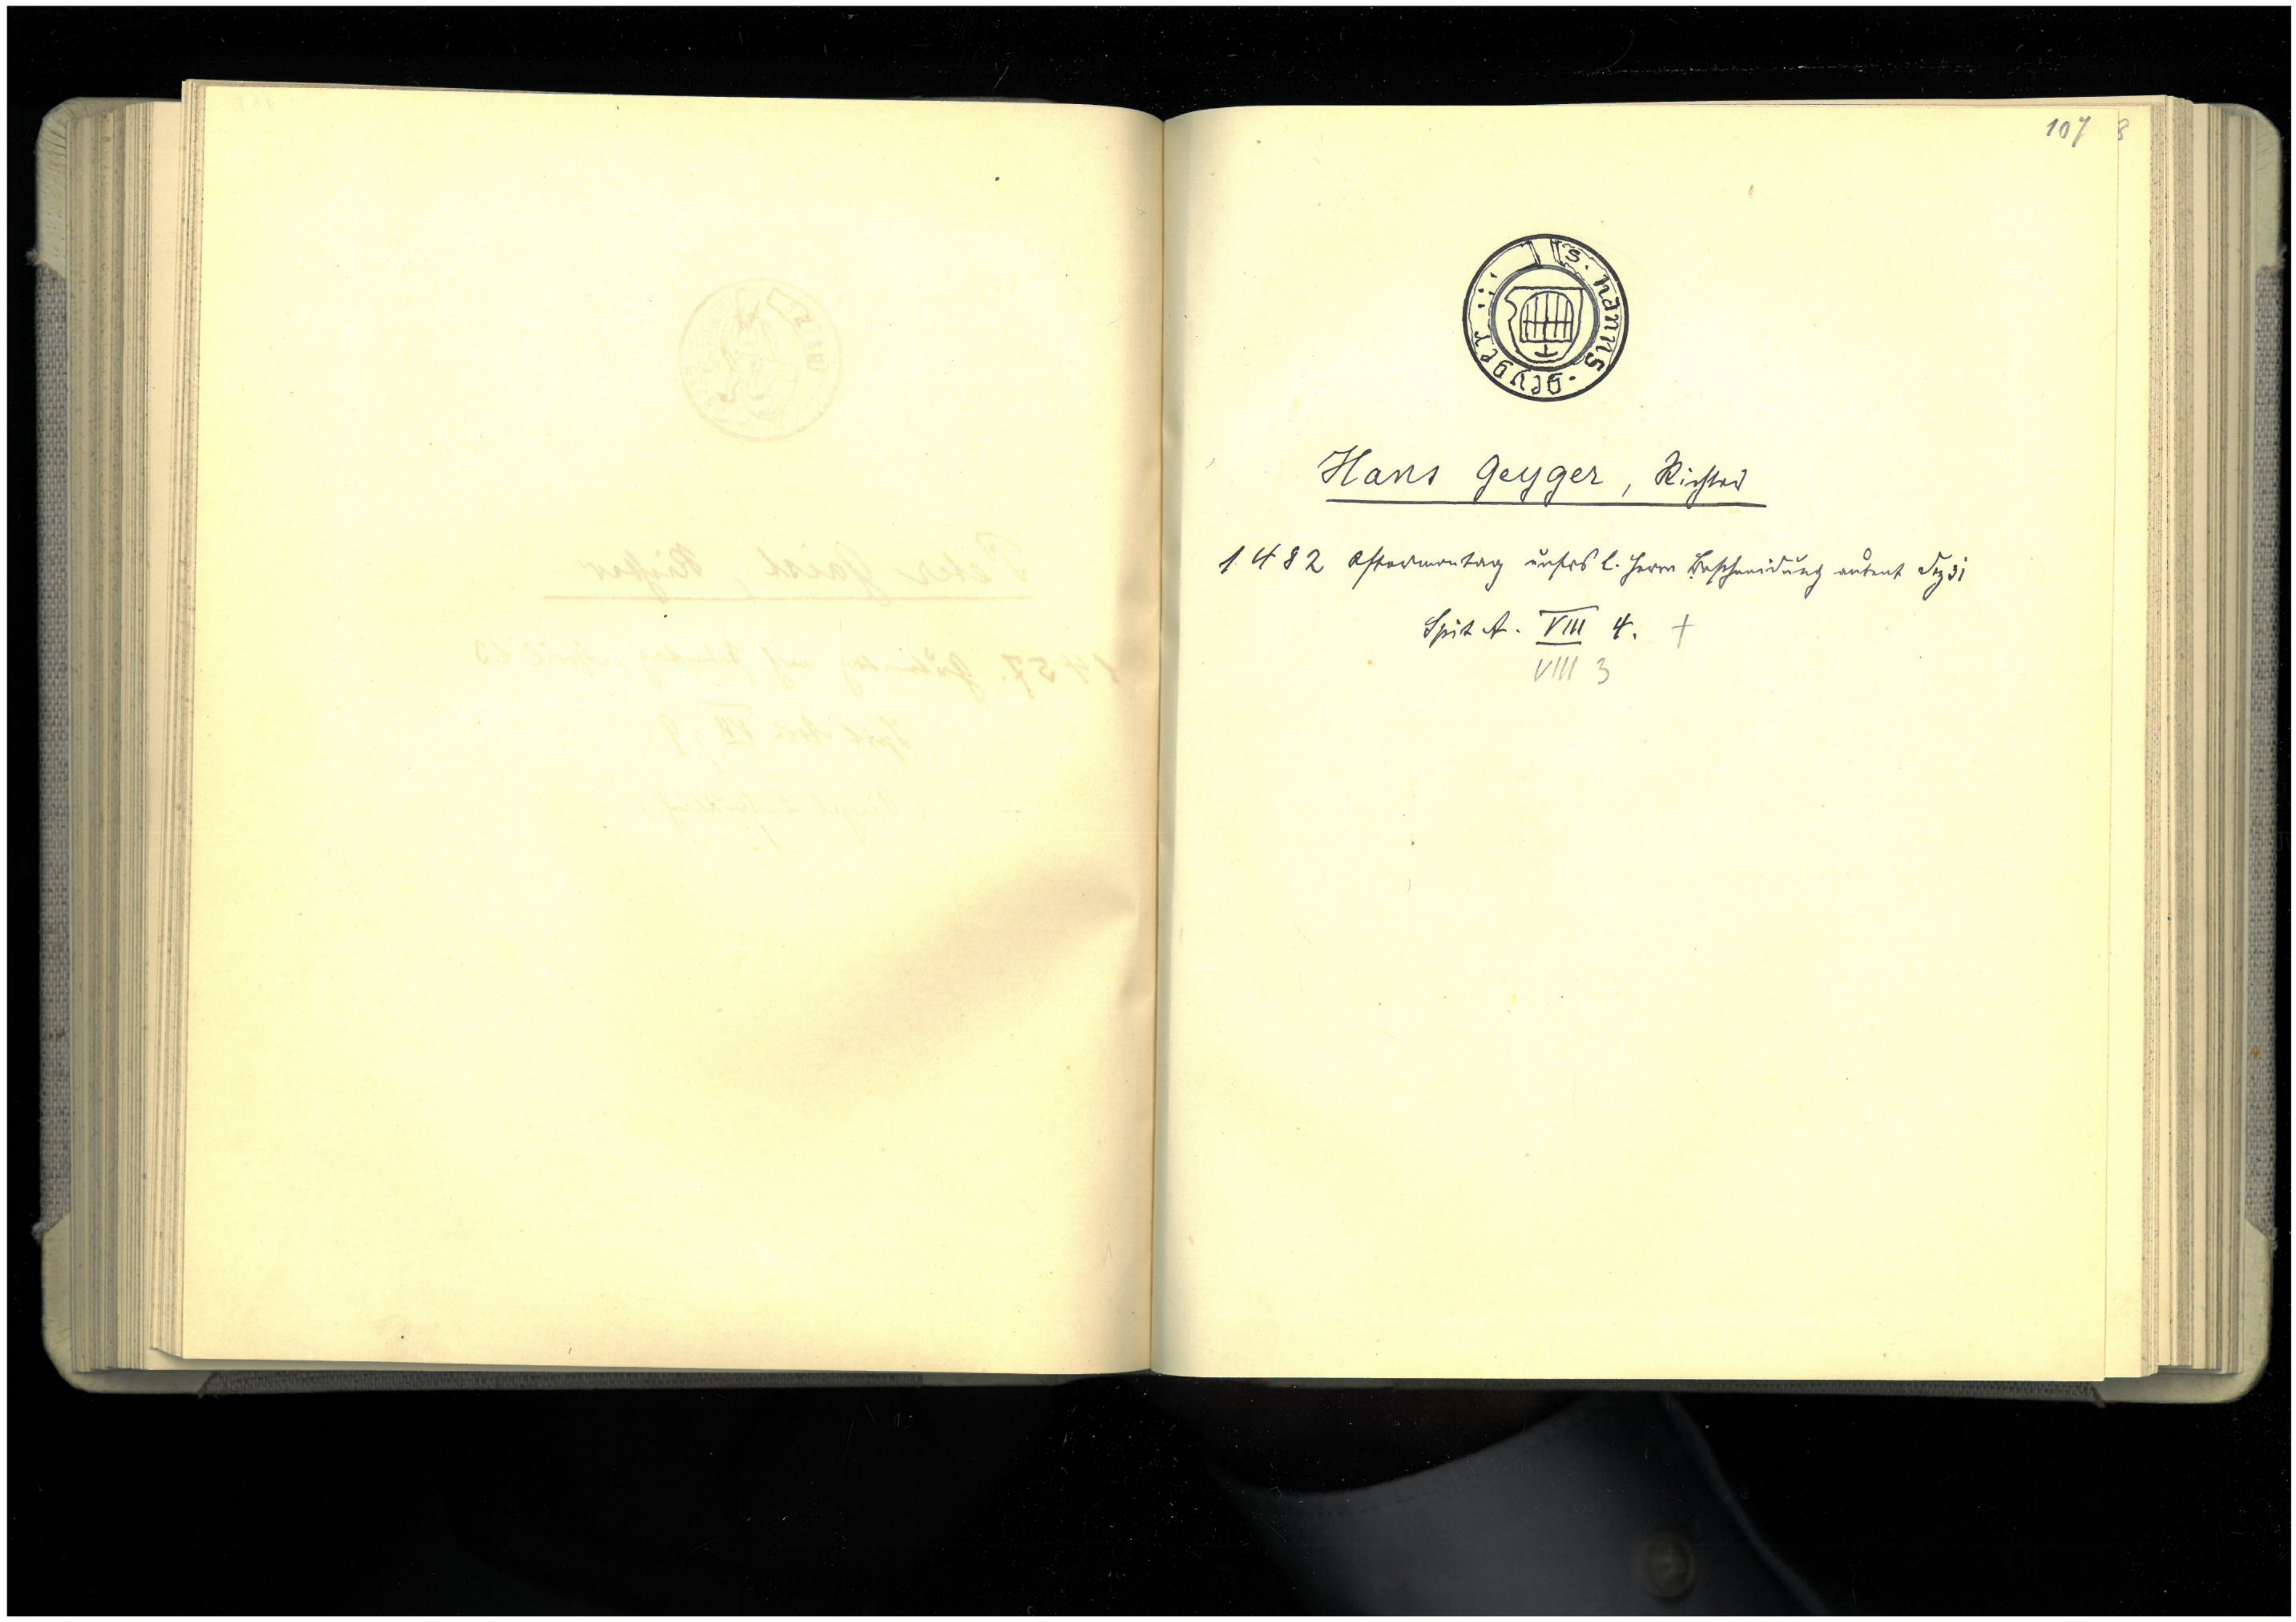 107 8
s. hanns. geyger
Hans Geyger, Richter
1482 Aftermontag unsers l. Herrn Beschneidung abent Dez 31
Spit A. VIII 4. +
VIII 3